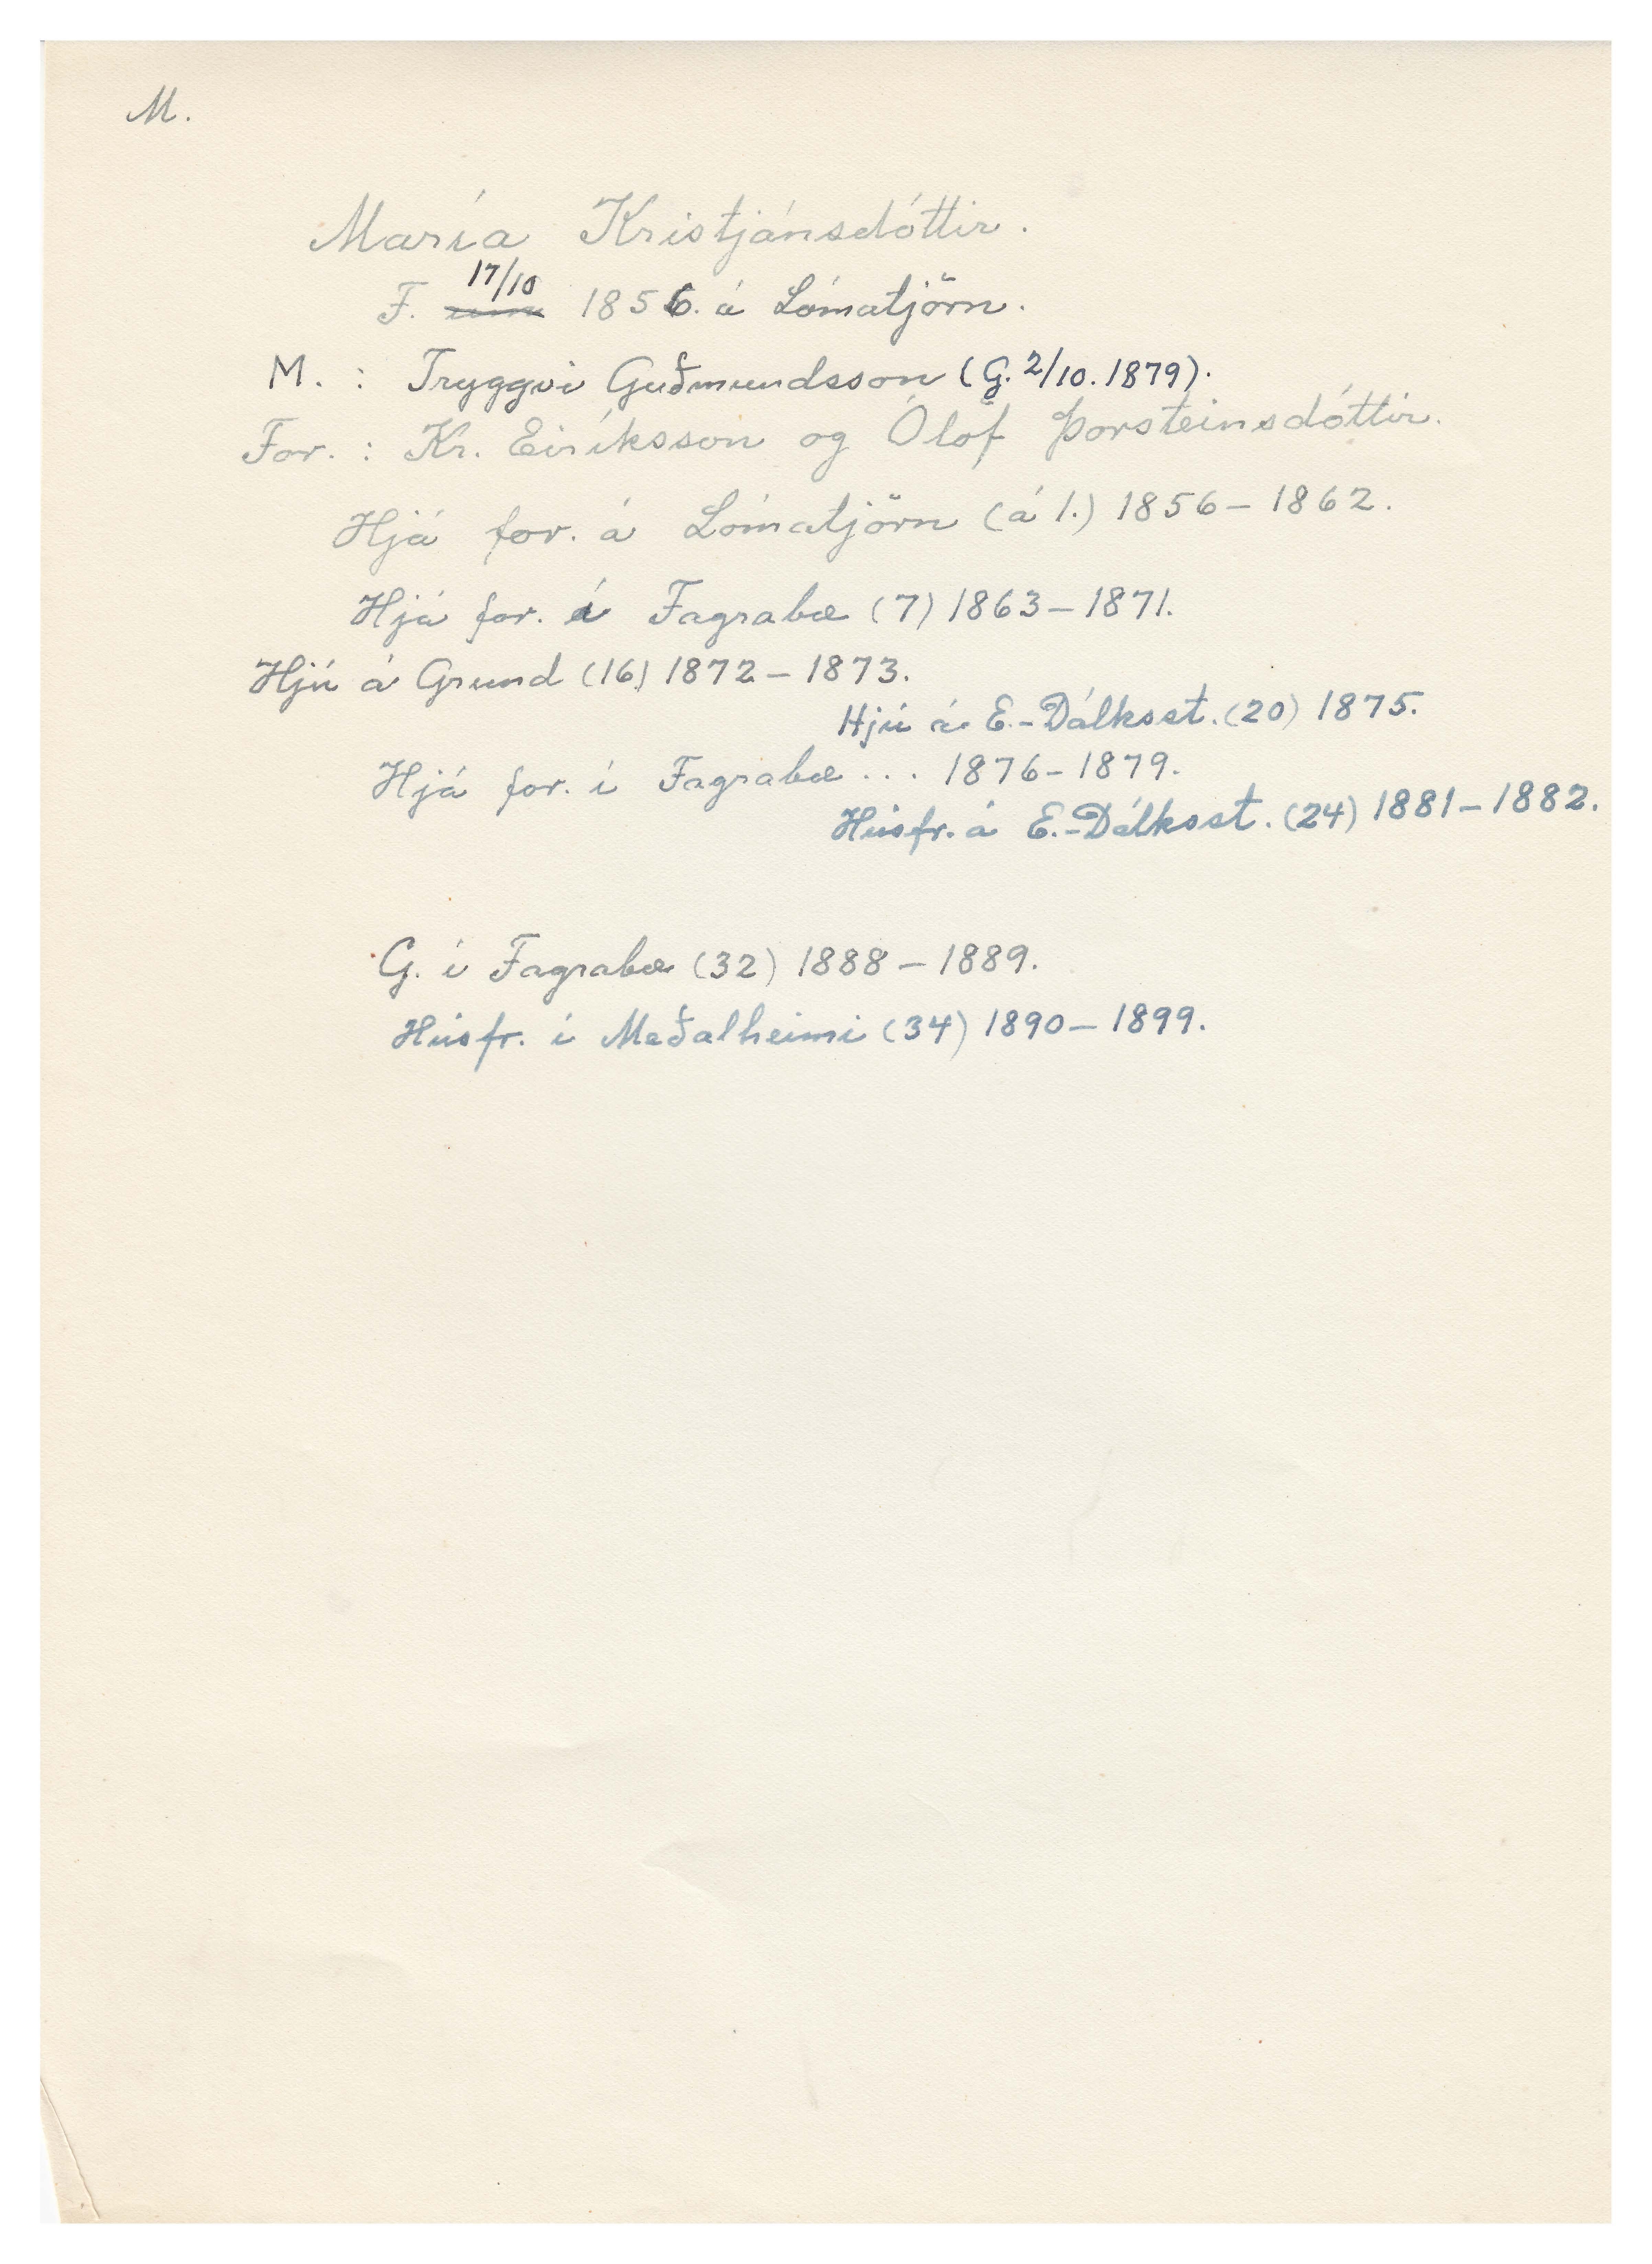 M.
María Kristjánsdóttir.
17/10
F. um 1856. á Lómatjörn.
M. : Tryggvi Guðmundsson (G. 2/10. 1879).
For. : Kr. Eiríksson og Ólöf Þorsteinsdóttir.
Hjá for. á Lómatjörn (á 1.) 1856-1862.
Hjá for. í Fagrabæ (7) 1863-1871.
Hjú á Grund (16) 1872-1873.
Hjú á E.-Dálksst. (20) 1875.
Hjá for. í Fagrabæ ... 1876-1879.
Húsfr. á E.-Dálksst. (24) 1881-1882.
G. í Fagrabæ (32) 1888-1889.
Húsfr. í Meðalheimi (34) 1890-1899.